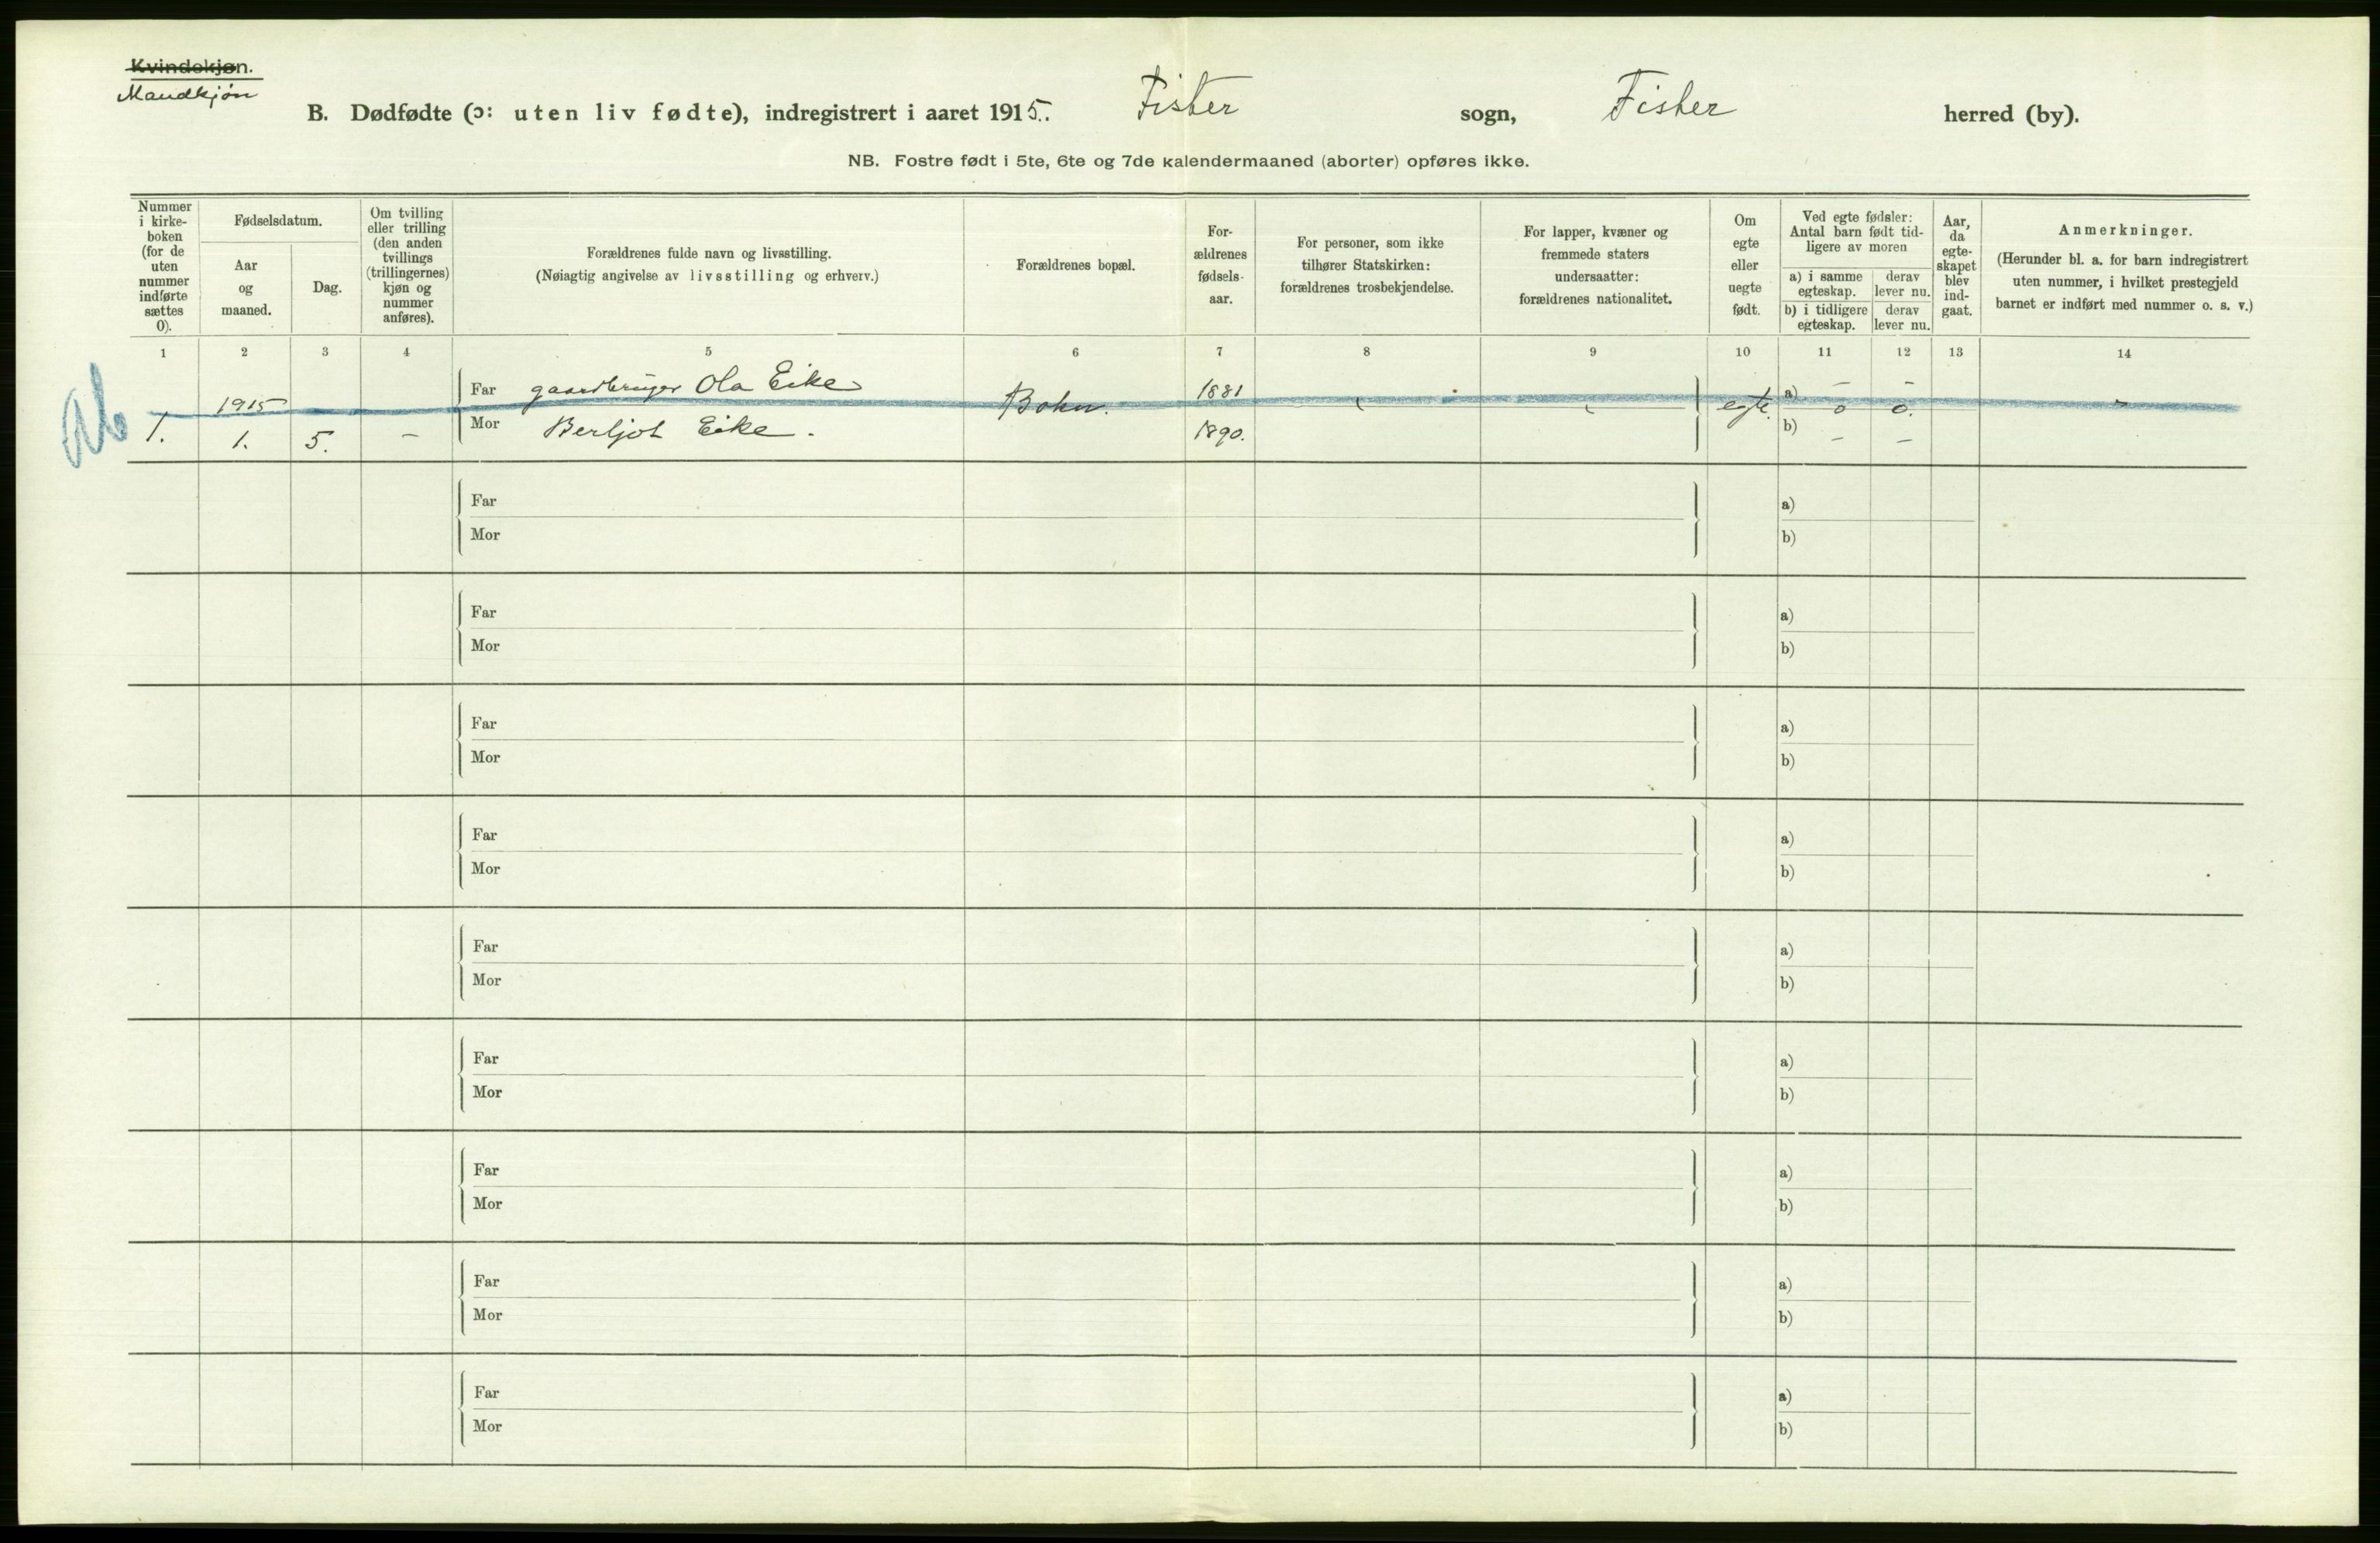 Kvindekjøn.
Mandkjøn
B. Dødfødte (ɔ: uten liv fødte), indregistrert i aaret 1915. Fister sogn, Fister herred (by).
NB. Fostre født i 5te, 6te og 7de kalendermaaned (aborter) opføres ikke.
Nummer i kirke-
boken
(for de
uten
nummer
indførte
sættes
0).
Fødselsdatum.
Aar
og
maaned.
Dag.
Om tvilling
eller trilling
(den anden
tvillings
(trillingernes)
kjøn og
nummer
anføres).
Forældrenes fulde navn og livsstilling.
(Nøiagtig angivelse av livsstilling og erhverv.)
Forældrenes bopæl.
For-
ældrenes
fødsels-
aar.
For personer, som ikke
tilhører Statskirken:
forældrenes trosbekjendelse.
For lapper, kvæner og
fremmede staters
undersaatter:
forældrenes nationalitet.
Om
egte
eller
uegte
født.
Ved egte fødsler:
Antal barn født tid-
ligere av moren
a) i samme
egteskap.
derav
lever nu.
b) i tidligere
egteskap.
derav
lever nu.
Aar,
da
egte-
skapet
blev
ind-
gaat.
Anmerkninger.
(Herunder bl. a. for barn indregistrert
uten nummer, i hvilket prestegjeld
barnet er indført med nummer o. s. v.)
1 2 3 4 5 6 7 8 9 10 11 12 13 14
1915 Far gaardbruger Ola Eike 1881 a) – –
1. Bohn. egte. o o.
1. 5. – Mor Berljot Eike. 1890. b) – –
Far a)
Mor b)
Far a)
Mor b)
Far a)
Mor b)
Far a)
Mor b)
Far a)
Mor b)
Far a)
Mor b)
Far a)
Mor b)
Far a)
Mor b)
Far a)
Mor b)